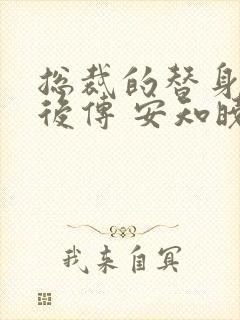 总裁的替身
后传 安知晓
我来自冥